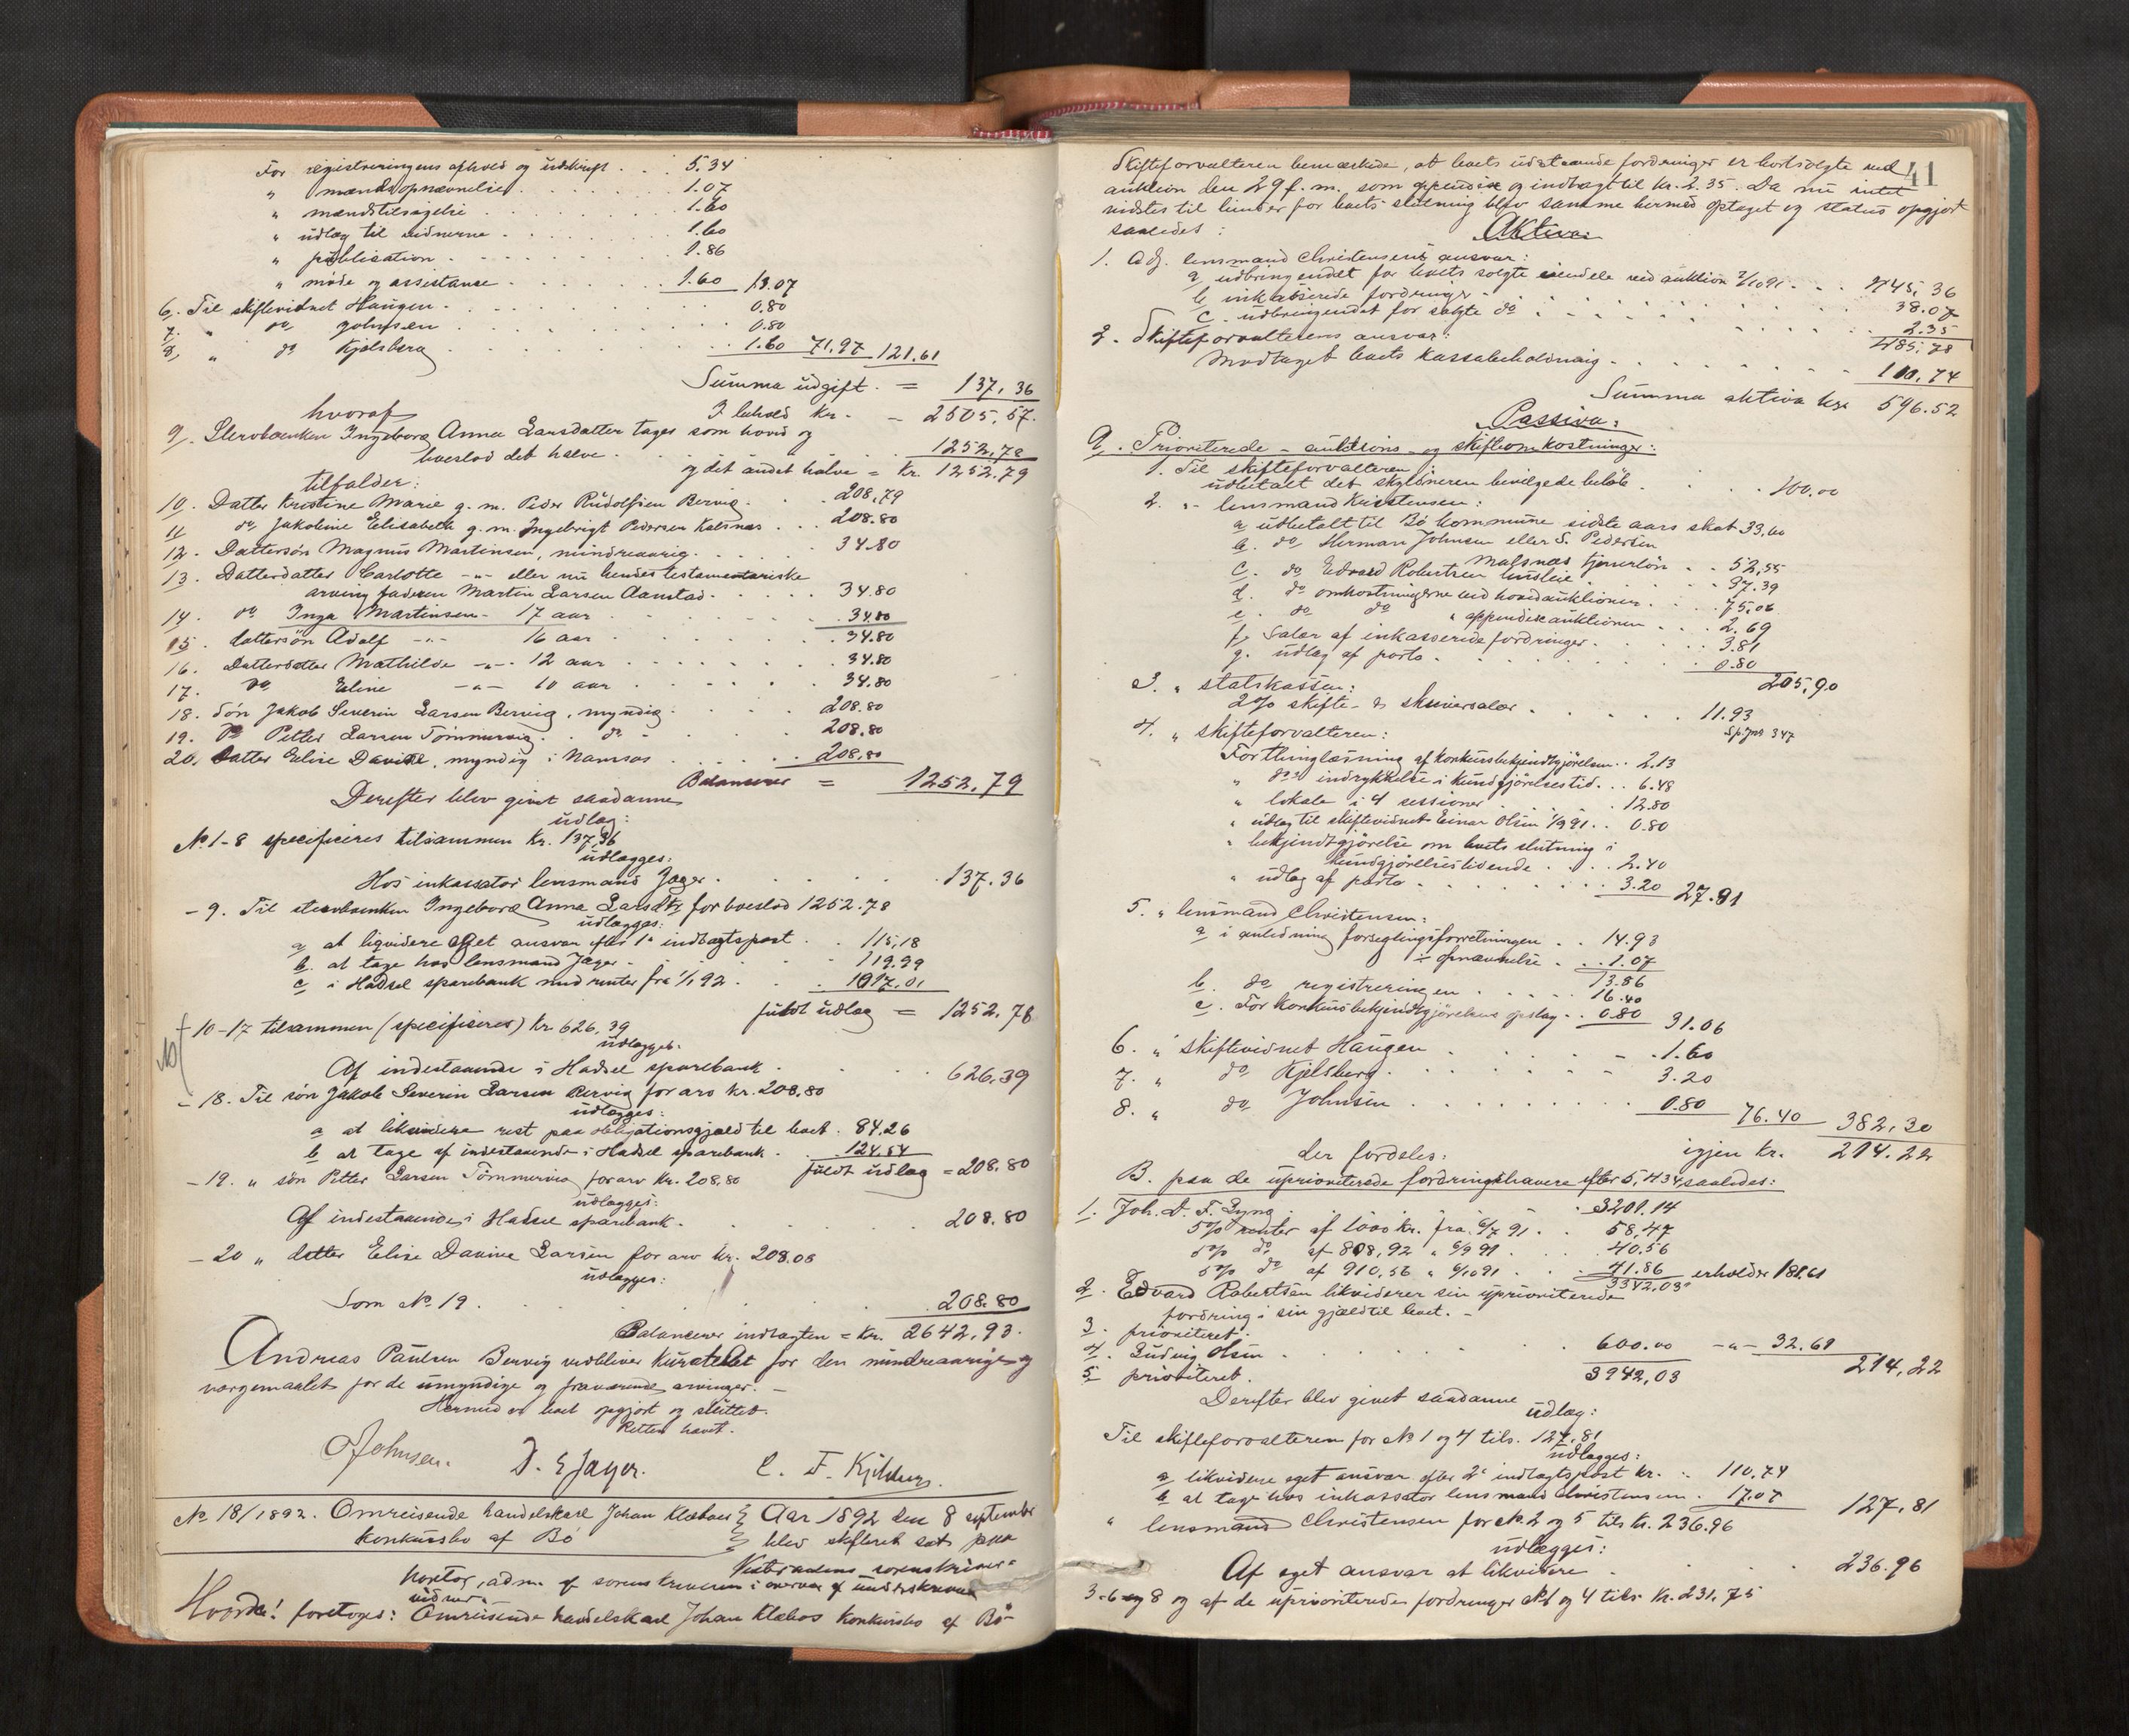 For registreringens afhold og udskrift . . . 5.34
" mandsopnævnelse . . . 1.07
" mændstilsigelse . . . 1.60
" udlæg til vidnerne . . . 1.60
" publikation . . . 1.86
" møde og assistanse . . . 1.60 13.07
6. Til skiftevidnet Haugen . . . 0.80
7. " do Johnsen . . . 0.80
8, " do Kjelsberg . . . 1.60 71.97 121.61
Summa udgift . = 137.36
hvoraf I behold kr. - 2505.57.
9. Stervbænken Ingeborg Anna Larsdatter tages som hoved og
boeslod det halve . . . 1252.78
og det andet halve = Kr. 1252.79
tilfalder:
10. Datter Kristine Marie g. m. Peder Rudolfsen Bervig . . 208.79
11 do Jakobine Elisabeth g. m. Ingebrigt Pedersen Kalsnæs . . . 208.80
12. Dattersøn Magnus Martinsen, mindreaarig . . . 34.80
13. Datterdatter Carlotte -"- eller nu hendes testamentariske
arving faderen Martin Larsen Aanstad . . . 34.80
14. do Inga Martinsen - 17 aar . . . 34.80
15. dattersøn Adolf -"- 16 aar . . . 34.80
16. Datterdatter Mathilde -"- 12 aar . . . 34.80
17. do Eline -"- 10 aar . . . 34.80
18. Søn Jakob Severin Larsen Bervig, myndig . . . 208.80
19. do Petter Larsen Tømmervig . . do . . 208.80
20, Datter Elise Davine, myndig i Namsos . . . 208.80
Balancerer = 1252.79
Derefter blev givet saadanne
udlæg:
No 1-8 specificeres tilsammen Kr. 137.36
udlægges:
Hos inkassator lensmand Jæger . . . 137.36
- 9. Til stervbænken Ingeborg Anna Larsdtr for boeslod 1252.78
udlægges:
a at liqvidere eget ansvar efter 1e indtægtspost . . 115,18
b. at tage hos lensmand Jæger . . . 119.99
c i Hadsel sparebank med renter fra 1/1 92 . . . 1017.01
fuldt udlæg = 1252.78
10-17 tilsammen (specificeres) Kr. 626,39
udlægges.
Af indestaaende i Hadsel sparebank . . . 626.39
- 18. Til søn Jakob Severin Larsen Bervig for arv kr. 208.80
udlægges:
a at likvidere rest paa obligationsgjæld til boet . 84.26
b at tage af indestaaende i Hadsel sparebank . 124.54
fuldt udlæg = 208.80
- 19. " søn Petter Larsen Tømmervig for arv Kr. 208.80
udlægges:
Af indestaaende i Hadsel sparebank . . . 208.80
- 20 " datter Elise Davine Larsen for arv kr. 208.08
udlægges:
Som No. 19 . . . 208.80
Balancerer indtægten = Kr. 2642.93.
Andreas Paulsen Bervig vedbliver Kuratelet for den mindreaarige og
værgemaalet for de umyndige og fraværende arvinger. -
Hermed er boet opgjort og sluttet.
Retten hævet.
Johnsen. D. E Jæger. C. F. Kjelsberg.
No 18/1892. Omreisende handelskarl Johan Klæboes } Aar 1892 den 8 september
konkursbo af Bø } blev skifteret sat paa
Vesteraalens sorenskriver-
kontor, adm. af sorenskriveren i overvær af undertskrevne
vidner.
Hvorda! foretoges: Omreisende handelskarl Johan Klæbos konkursbo af Bø

41
Skifteforvalteren bemærkede, at boets udstaaende fordringer er bortsolgte ved
auktion den 29 f. m. som appendix og indbragt til kr. 2.35. Da nu intet
vidstes til hinder for boets slutning blev samme hermed optaget og status opgjort
saaledes:
Aktiva:
1. Adj. lensmand Christensens ansvar:
a udbringendet for boets solgte eiendele ved auktion 2/10 91 . . . 445,36
b inkasserede fordringer . . . 38.07
c. udbringendet for solgte do . . . 2.35
485,78
2. Skifteforvalterens ansvar:
Modtaget boets kassabeholdning . . . 110,74
Summa aktiva kr. 596.52
Passiva:
A. Prioriterede - auktions- og skifteomkostninger:
1. Til skifteforvalteren:
udbetalt det skyldneren bevilgede beløb . . . 100.00
2. -"- lensmand Kristensen:
a udbetalt til Bø kommune sidste aars skat 33,60
b. do Herman Johnsen eller S. Pedersen
Malsnæs tjenerløn . . 52,55
c. do Edvard Robertsen husleie . . . 37.39
d. do omkostningerne ved hovedauktionen . . . 75,06
e. do do " appendixauktionen . . . 2.69
f. Salær af inkasserede fordringer . . . 3.81
g. udlæg af porto . . . 0.80
205,90
3. " statskassen:
2% skifte- & skriversalær . . . 11.93
Sp. jnr 347
4. " skifteforvalteren:
For thinglæsning af konkursbekjendtgjørelsen . . 2.13
" do indrykkelse i Kundgjørelsestid. . . 6.48
" lokale i 4 sessioner . . . 12.80
" udlæg til skiftevidnet Einar Olsen 1/9 91 . . 0.80
" bekjendtgjørelse om boets slutning i
kundgjørelsestidende . . . 2.40
" udlæg af porto . . . 3.20 27.81
5. " lensmand Christensen:
a i anledning forseglingsforretningen . . 14.93
÷ opnævnelse . . . 1.07
13.86
b. do registreringen . . . 16.40
c. For konkursbekjendtgjørelsens opslag . . 0.80 31.06
6. " skiftevidnet Haugen . . . 1.60
7. " do Kjelsberg . . . 3.20
8. " do Johnsen . . . 0.80 76.40 382,30
der fordeles: igjen Kr. 214.22
B. paa de uprioriterede fordringshavere efter 5,434, saaledes:
1. Joh. A. F. Lyng . . . 3201.14
5% renter af 1000 kr. fra 6/7 91 . . 58,47
5% do af 808,92 " 6/9 91 . . . 40.56
5% do af 910,56 " 6/10 91 . . . 41.86 erholder 181.61
3342,03
2. Edvard Robertsen likviderer sin uprioriterede
fordring i sin gjæld til boet. -
3. prioriteret.
4. Ludvig Olsen . . . 600.00 -"- 32.61
214,22
5 prioriteret. 3942,03
Derefter blev givet saadanne
udlæg:
Til skifteforvalteren for No 1 og 4 tils. 127.81
udlægges:
a likvidere eget ansvar efter 2e indtægtspost kr. . . 110,74
b at tage hos inkassator lensmand Christensen . 17.07 127,81
" lensmand Christensen for No. 2 og 5 tils Kr. 236.96
udlægges:
Af eget ansvar at likvidere . . . 236.96
3-6 og 8 og af de uprioriterede fordringer No 1 og 4 tils. Kr. 231,75